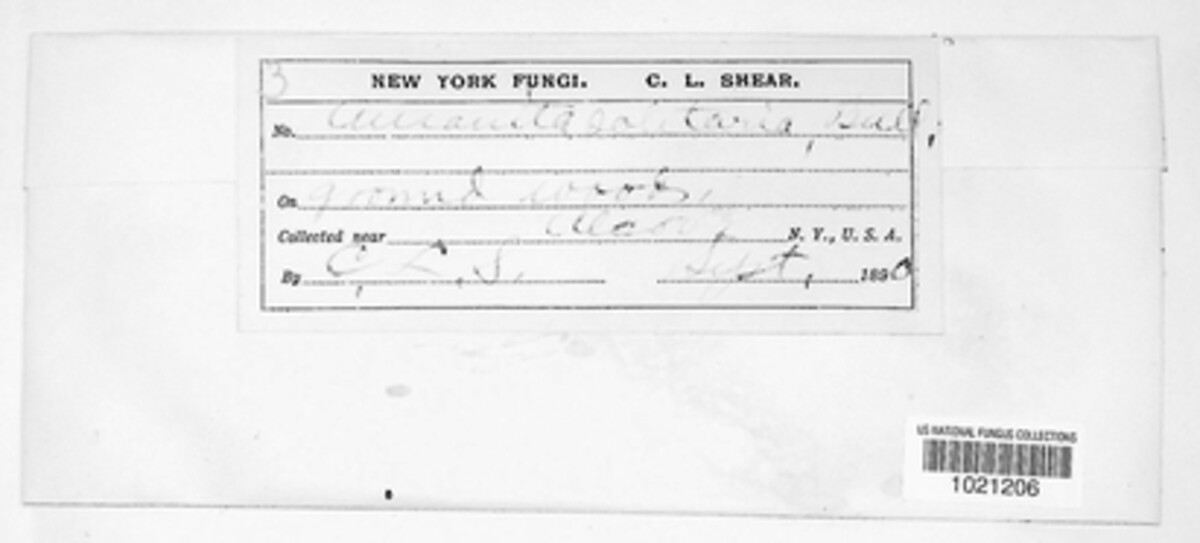 3
NEW YORK FUNGI. C. L. SHEAR.
No. Amanita solitaria, Bull.
On ground woods,
Collected near Alcove N. Y., U. S. A.
By C. L. S. Sept, 1890
US NATIONAL FUNGUS COLLECTIONS
1021206